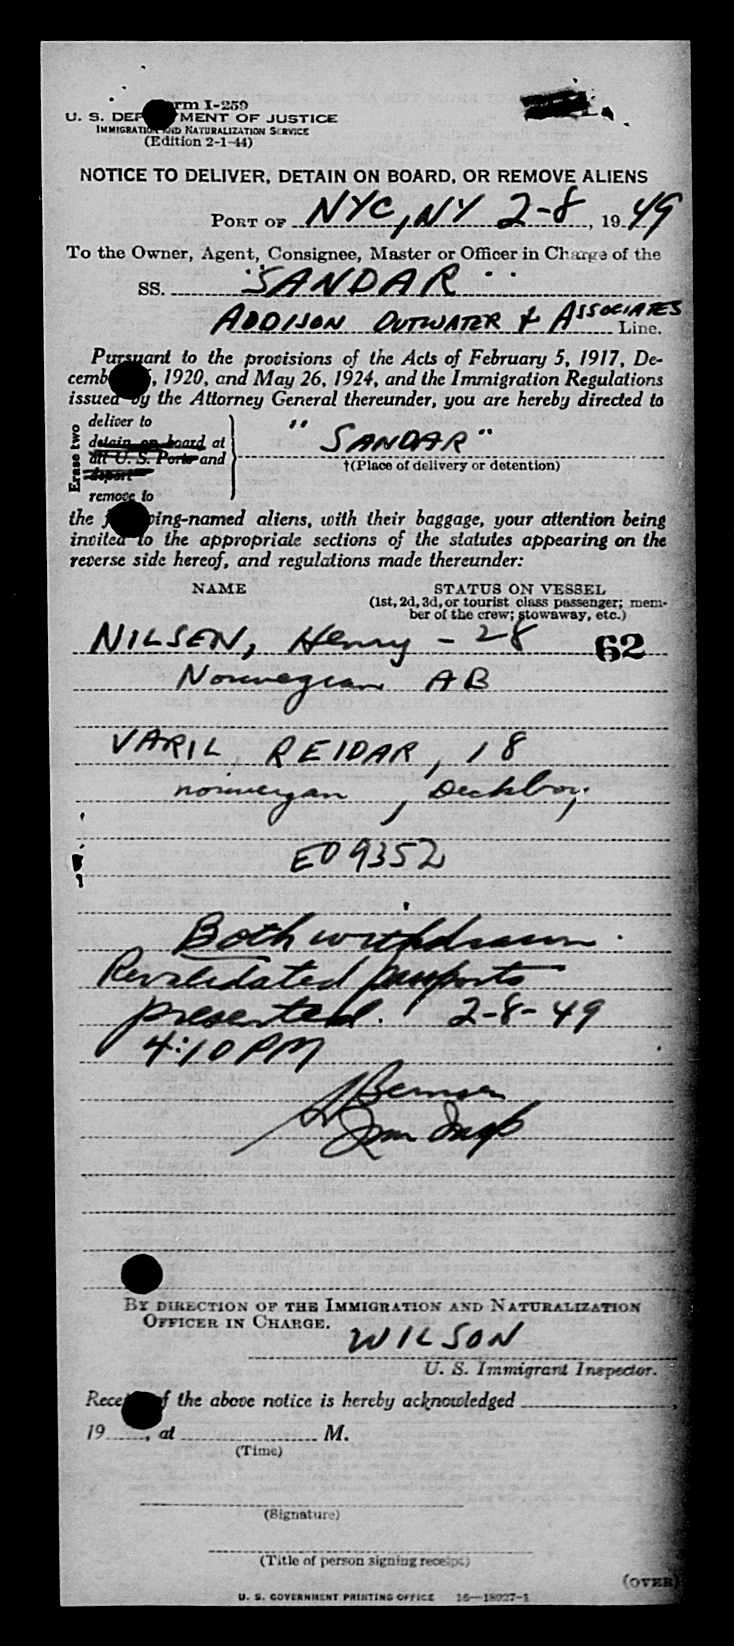 Form I-259
U. S. DEPARTMENT OF JUSTICE
IMMIGRATION AND NATURALIZATION SERVICE
(Edition 2-1-44)
NOTICE TO DELIVER, DETAIN ON BOARD, OR REMOVE ALIENS
PORT OF NYC, NY 2-8, 1949
To the Owner, Agent, Consignee, Master or Officer in Charge of the
SS. "SANDAR"
ADDISON OUTWATER & ASSOCIATES Line.
Pursuant to the provisions of the Acts of February 5, 1917, De-
cember , 1920, and May 26, 1924, and the Immigration Regulations
issued by the Attorney General thereunder, you are hereby directed to
Erase two
deliver to
detain on board at
all U. S. Ports and
deport
remove to
"SANDAR"
†(Place of delivery or detention)
the following-named aliens, with their baggage, your attention being
invited to the appropriate sections of the statutes appearing on the
reverse side hereof, and regulations made thereunder:
NAME STATUS ON VESSEL
(1st, 2d, 3d, or tourist class passenger; mem-
ber of the crew; stowaway, etc.)
NILSEN, Henry - 28 62
Norwegian AB
VARIL REIDAR, 18
norwegian, Deckboy
EO 9352
Both withdrawn.
Revalidated passports
presented. 2-8-49
4:10 PM
Imm Insp
BY DIRECTION OF THE IMMIGRATION AND NATURALIZATION
OFFICER IN CHARGE.
WILSON
U. S. Immigrant Inspector.
Receipt of the above notice is hereby acknowledged
19 , at M.
(Time)
(Signature)
(Title of person signing receipt)
(OVER)
U. S. GOVERNMENT PRINTING OFFICE 16—18027-1